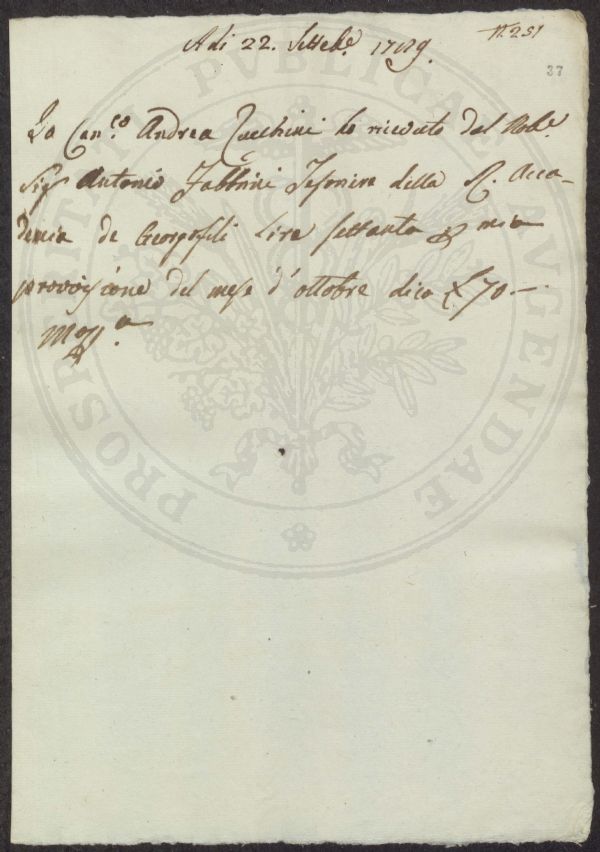 A di 22. Settebe. 1789.
N. 251
37
Io Can.co Andrea Zucchini ho ricevuto dal Nobe.
Sigr. Antonio Fabbrini Tesoriere della R. Acca-
demia de Georgofili lire settanta p mia
provvisione del mese d'ottobre dico £70.—
PROSPERITATI PVBLICAE AVGENDAE